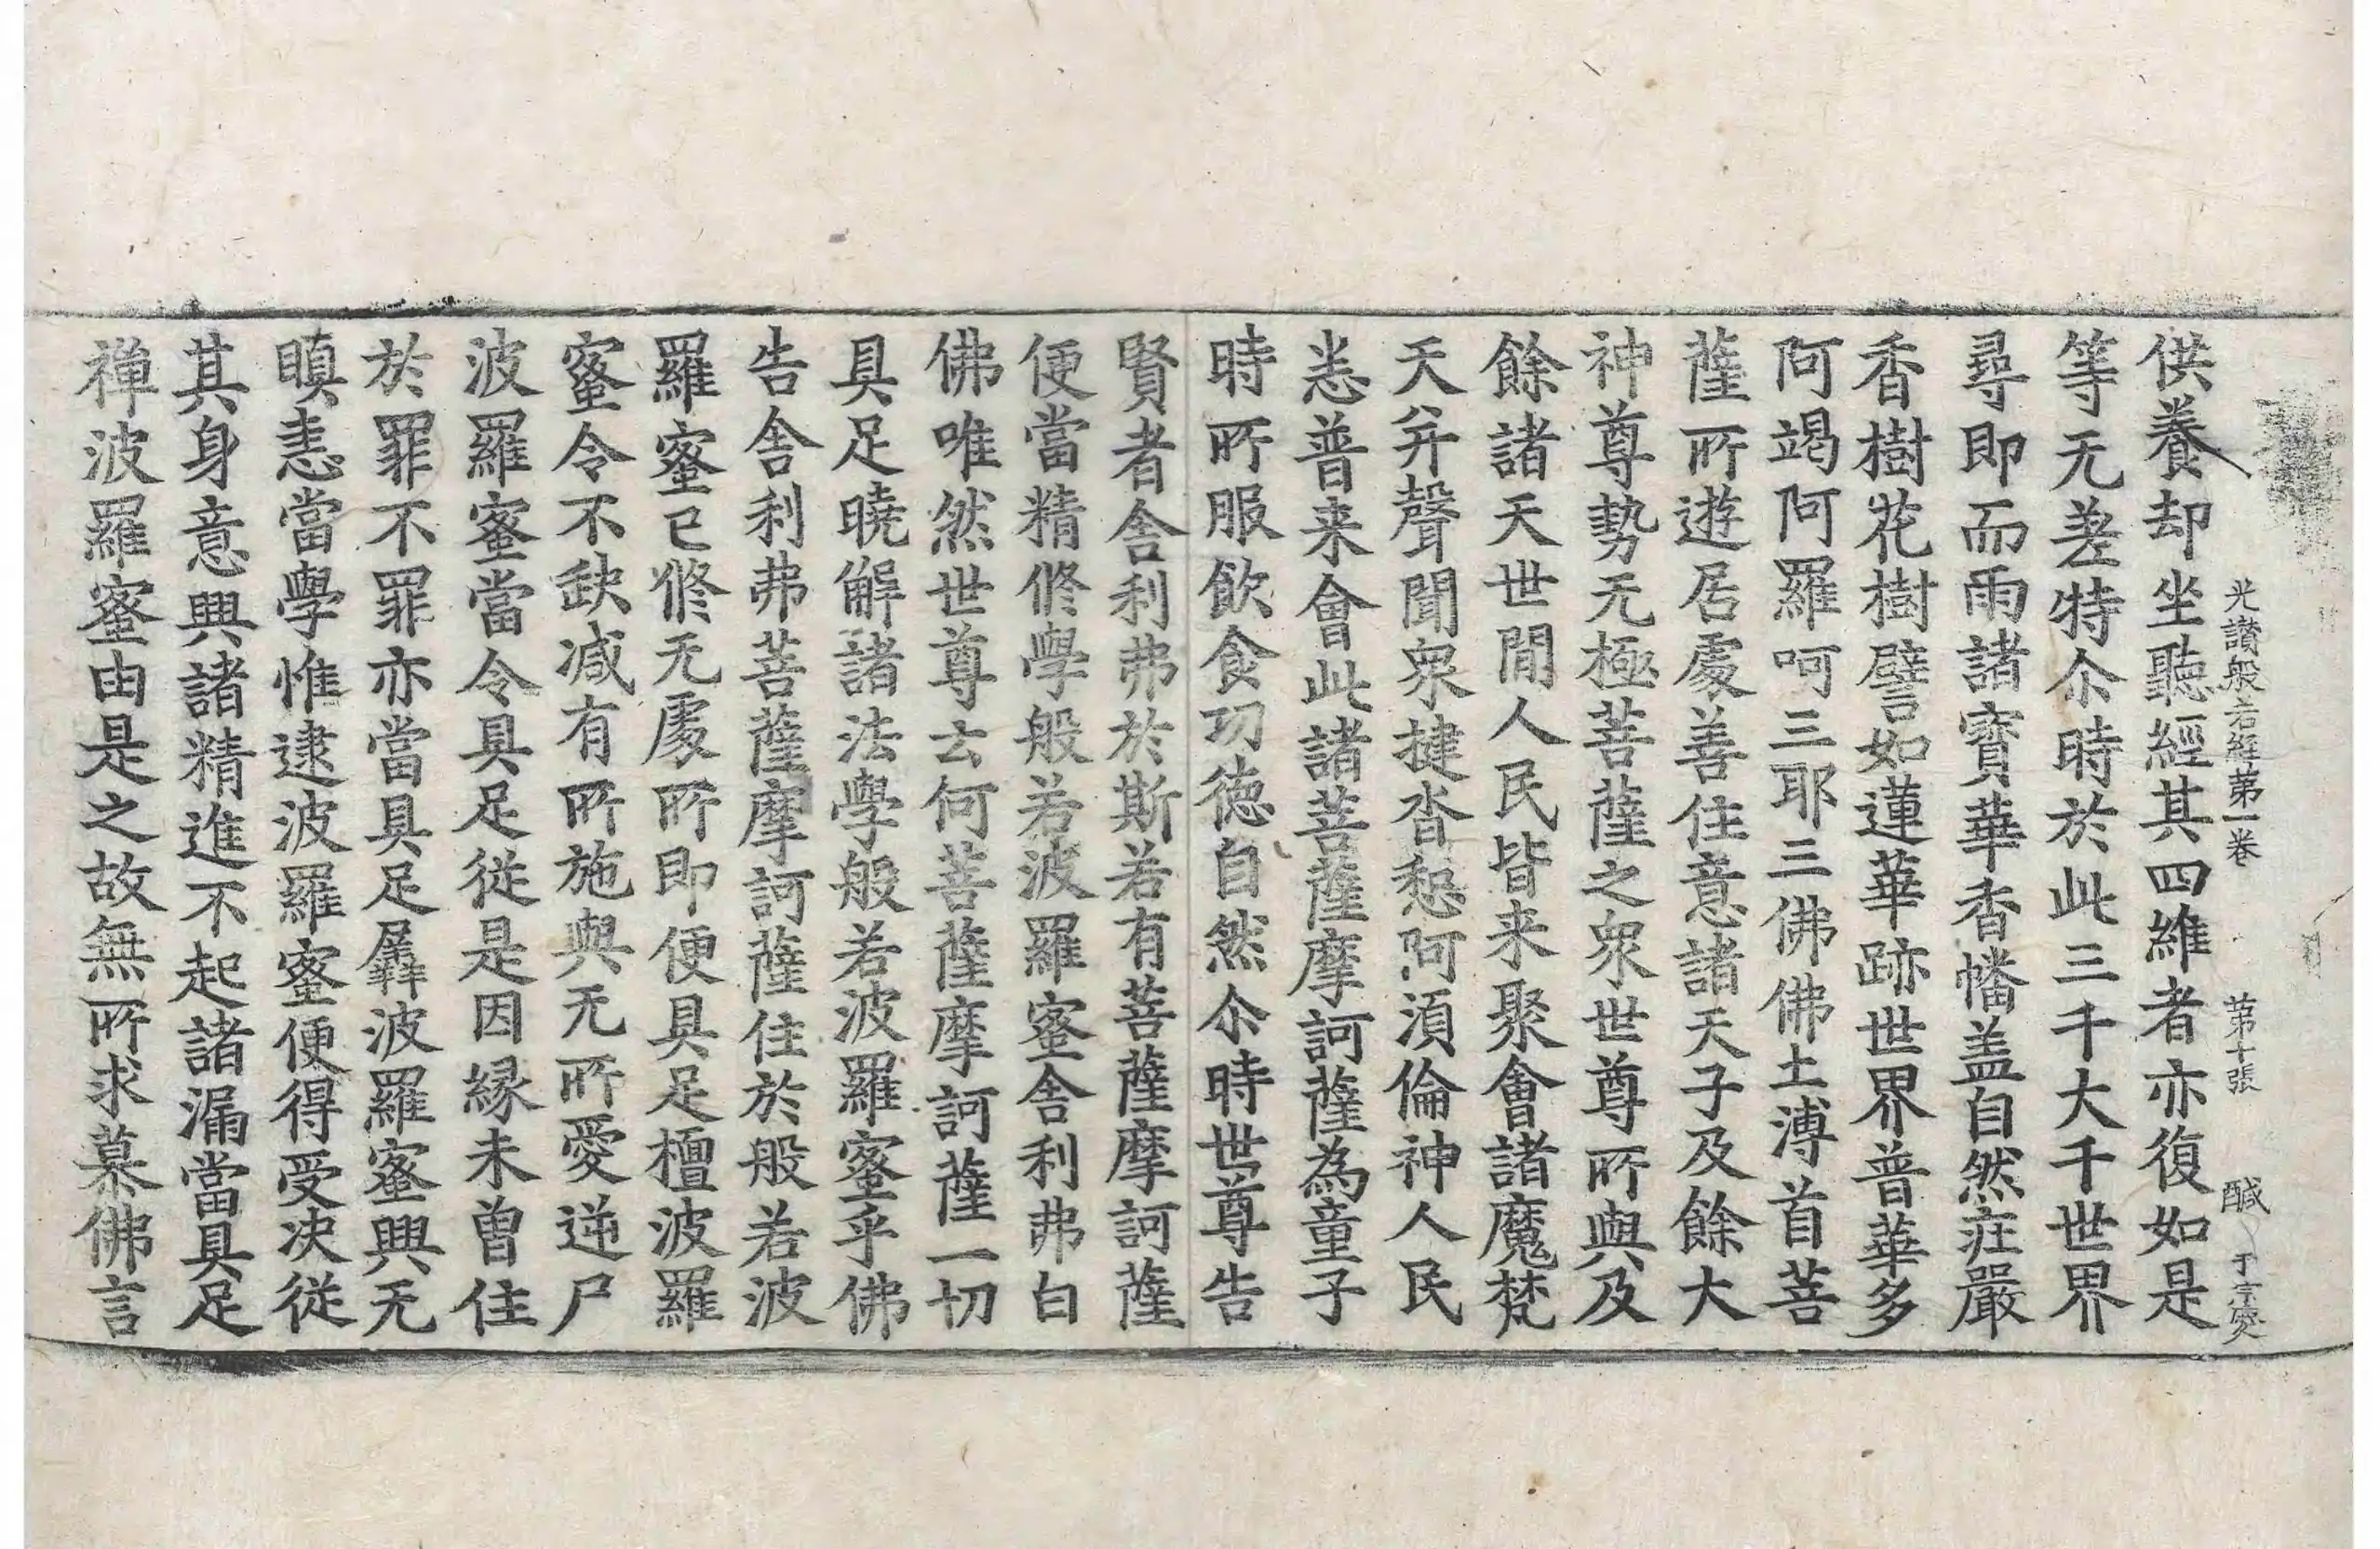 光讃般若經第一卷 第十張 醎 于宗
供養却坐聽經其四維者亦復如是
等无差特尒時於此三千大千世界
尋即而雨諸寳華香幡盖自然庄嚴
香樹花樹譬如蓮華跡世界普華多
阿竭阿羅呵三耶三佛佛土溥首菩
薩所遊居處善住意諸天子及餘大
神尊勢无極菩薩之衆世尊所與及
餘諸天世間人民皆来聚會諸魔梵
天并聲聞衆揵沓惒阿湏倫神人民
悉普来會此諸菩薩摩訶薩為童子
時所服飲食㓛徳自然尒時世尊告
賢者舎利弗於斯若有菩薩摩訶薩
便當精修學般若波羅蜜舎利弗白
佛唯然世尊云何菩薩摩訶薩一切
具足曉解諸法學般若波羅蜜乎佛
告舎利弗菩薩摩訶薩住於般若波
羅蜜已修无處所即便具足檀波羅
蜜令不缺减有所施與无所愛逆尸
波羅蜜當令具足從是因縁未曽住
於罪不罪亦當具足羼波羅蜜興无
瞋恚當學惟逮波羅蜜便得受决從
其身意興諸精進不起諸漏當具足
禅波羅蜜由是之故無所求慕佛言